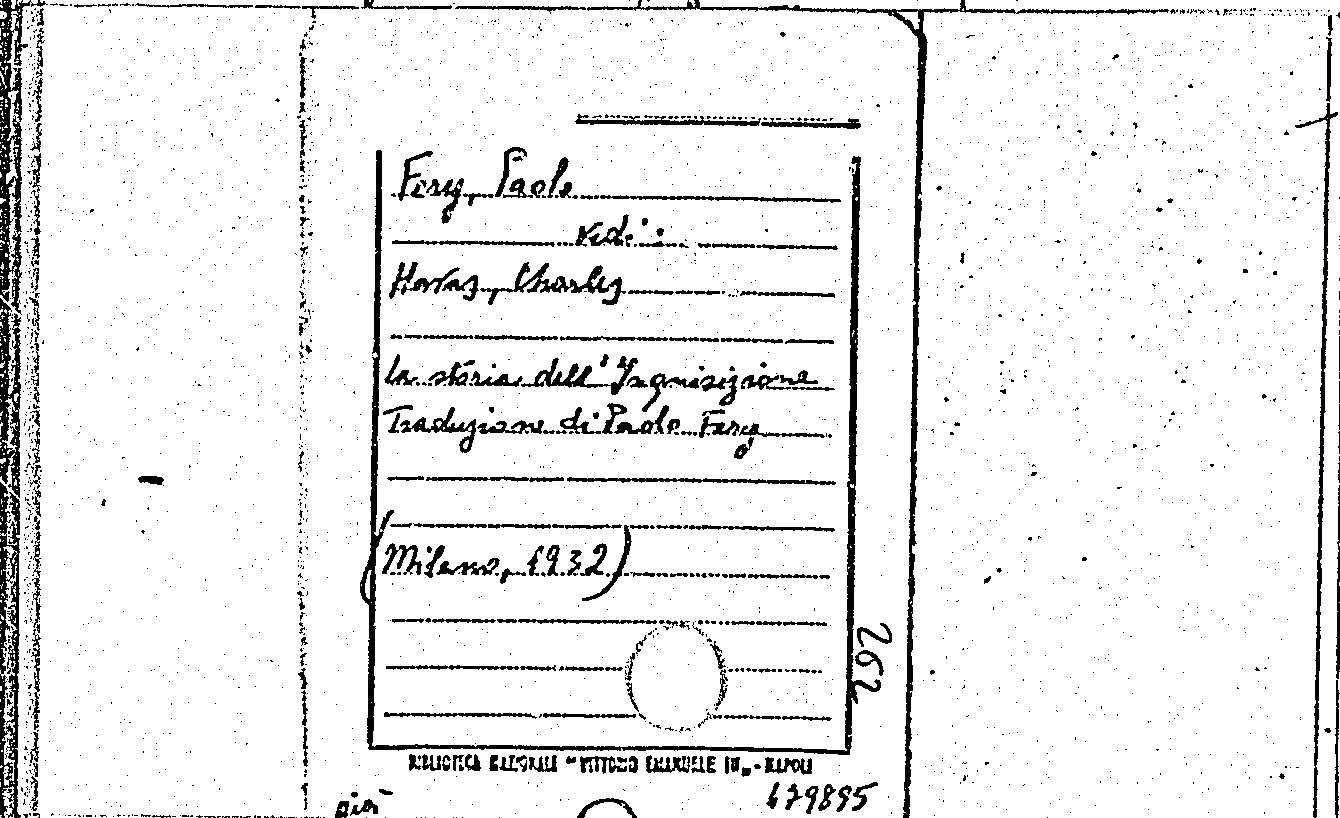 Fery, Paolo
vedi:
Havas, Charles
La storia dell'Inquisizione
Traduzione di Paolo Fery
(Milano, 1932)
262
BIBLIOTECA NAZIONALE "VITTORIO EMANUELE III" - NAPOLI
679895